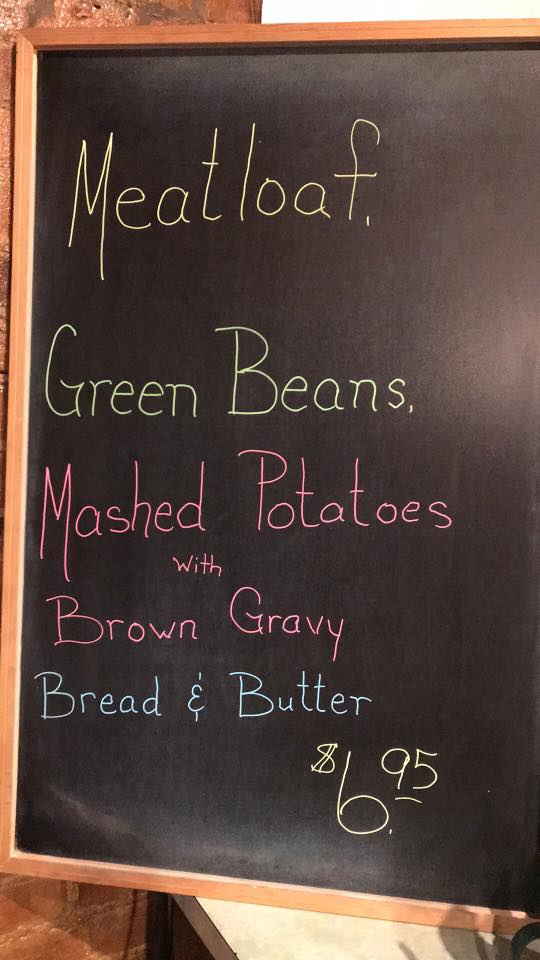 Meatloaf,
Green Beans,
Mashed Potatoes
with
Brown Gravy
Bread & Butter
$6.95